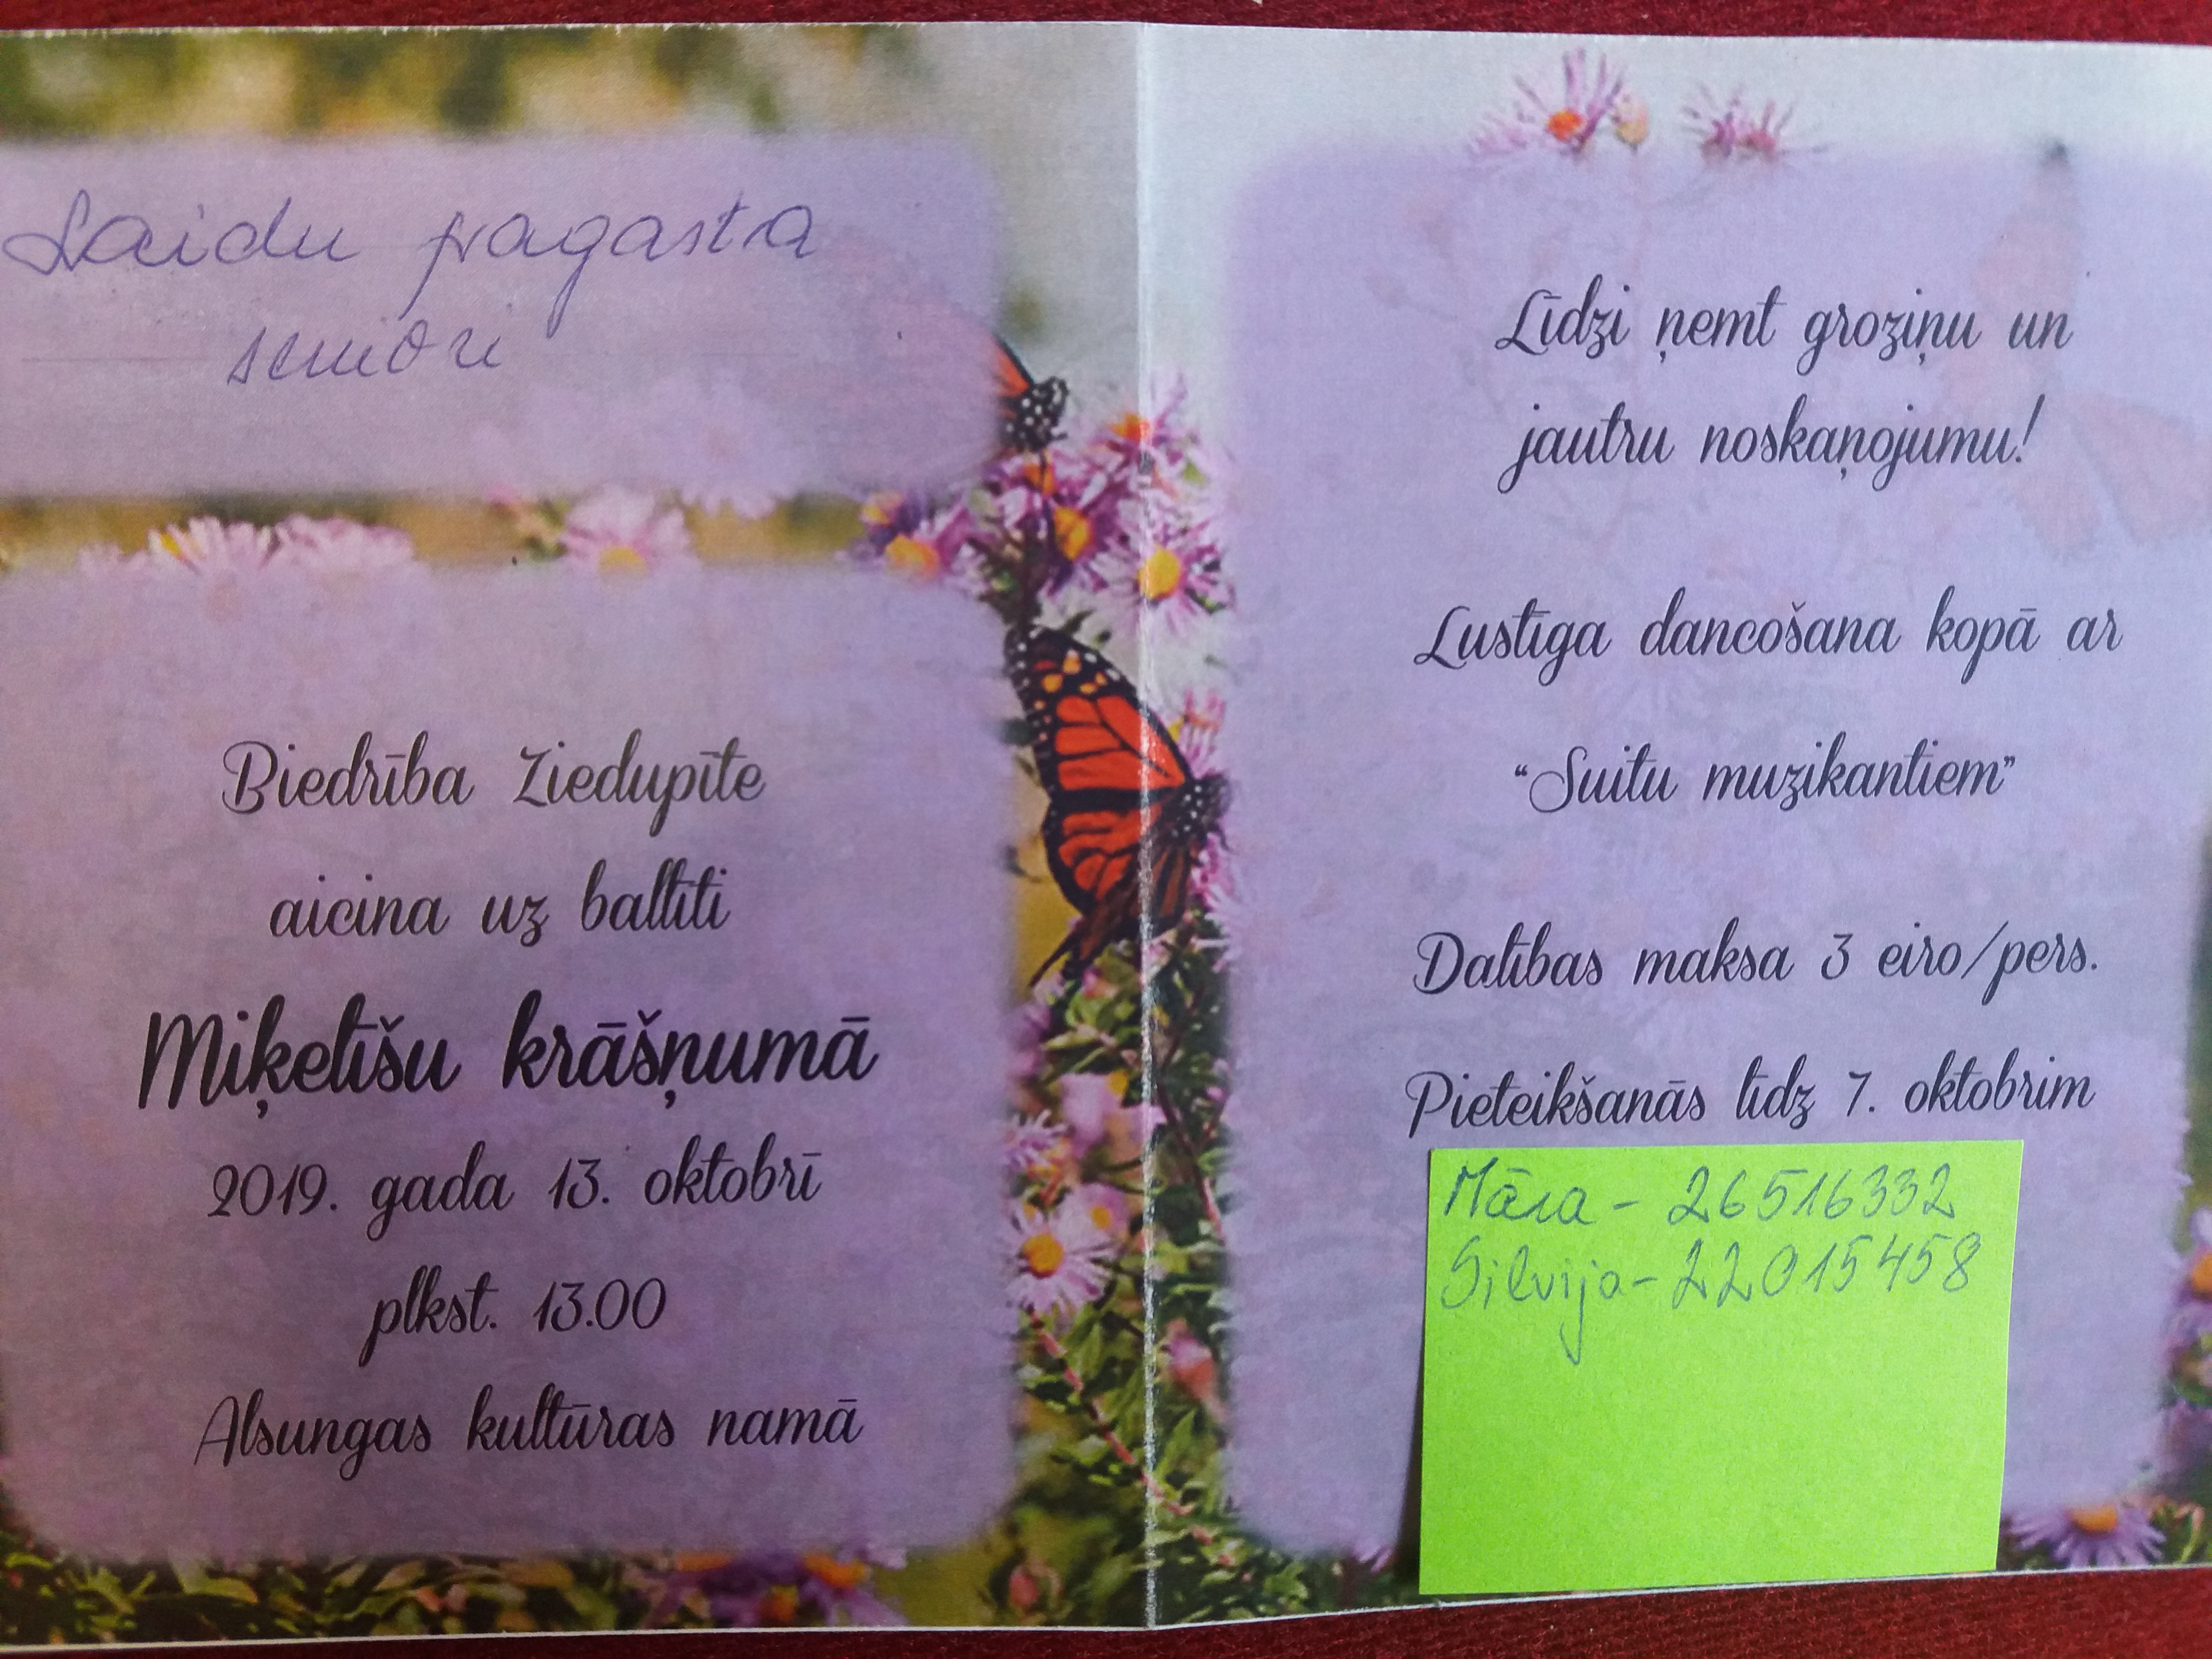 Laidu pagasta
seniori
Biedrība Ziedupīte
aicina uz ballīti
Miķelīšu krāšņumā
2019. gada 13. oktobrī
plkst. 13.00
Alsungas kultūras namā
Līdzi ņemt groziņu un
jautru noskaņojumu!
Lustīga dancošana kopā ar
“Suitu muzikantiem”
Dalības maksa 3 eiro/pers.
Pieteikšanās līdz 7. oktobrim
Māra - 26516332
Silvija - 22015458